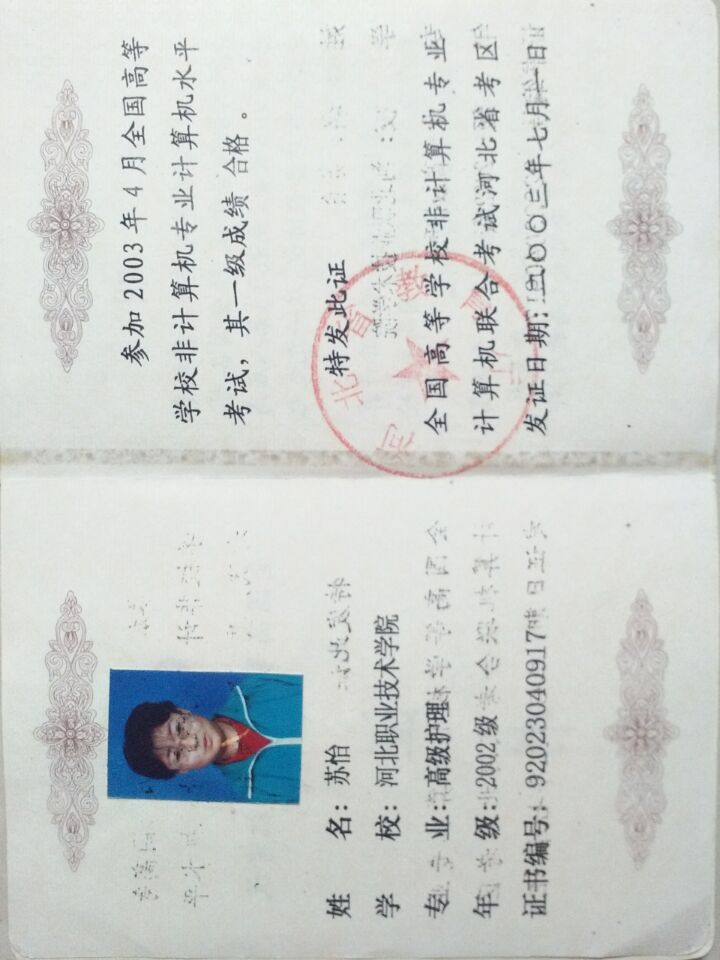 姓 名：苏怡
学 校：河北职业技术学院
专 业：高级护理
年 级：2002级
证书编号：92023040917
参加2003年4月全国高等
学校非计算机专业计算机水平
考试，其一级成绩 合格 。
特发此证
全国高等学校非计算机专业
计算机联合考试河北省考区
发证日期：二〇〇三年七月一日